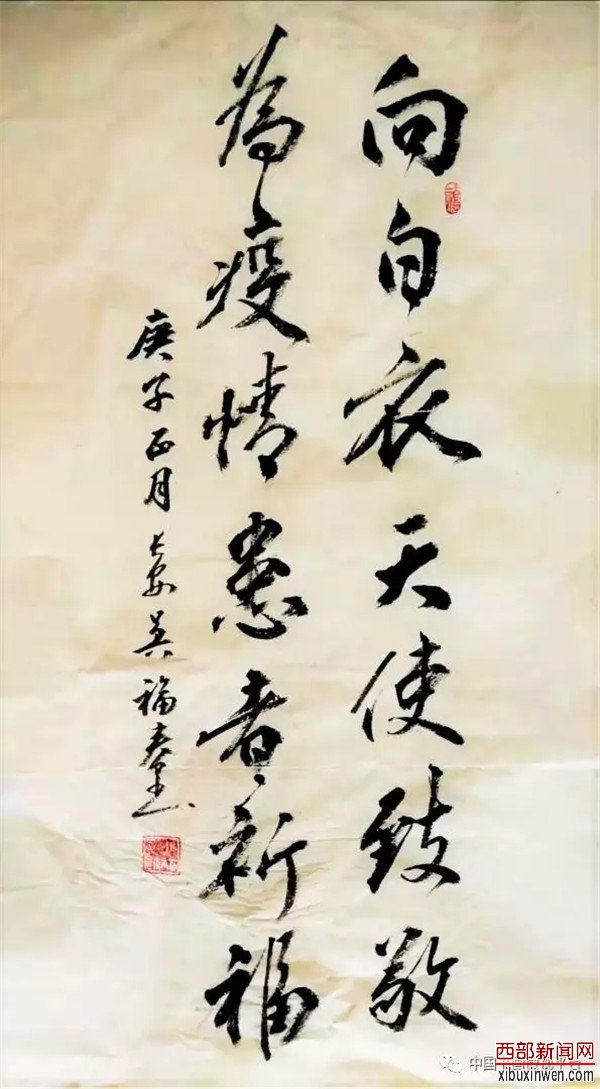 向白衣天使致敬
為疫情患者祈福
庚子正月 长安吴福春
西部新闻网
xibuxinwen.com